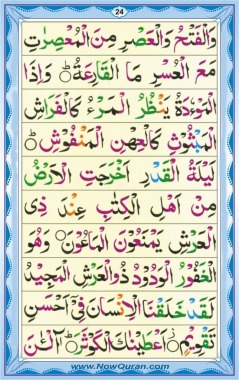 24
وَالْفَتْحُ وَالْعَصْرِ مِنَ الْمُعْصِرٰتِ
مَعَ الْعُسْرِ مَا الْقَارِعَةُ وَاِذَا
الْمَوْءٗدَةُ يَنْظُرُ الْمَرْءُ كَالْفَرَاشِ
الْمَبْثُوْثِ كَالْعِهْنِ الْمَنْفُوْشِ
لَيْلَةُ الْقَدْرِ اَخْرَجَتِ الْاَرْضُ
مِنْ اَهْلِ الْكِتٰبِ عِنْدَ ذِى
الْعَرْشِ يَمْنَعُوْنَ الْمَاعُوْنَ وَهُوَ
الْغَفُوْرُ الْوَدُوْدُ ذُو الْعَرْشِ الْمَجِيْدُ
لَقَدْ خَلَقْنَا الْاِنْسَانَ فِىْٓ اَحْسَنِ
تَقْوِيْمٍ اَعْطَيْنٰكَ الْكَوْثَرَ
www.NowQuran.com